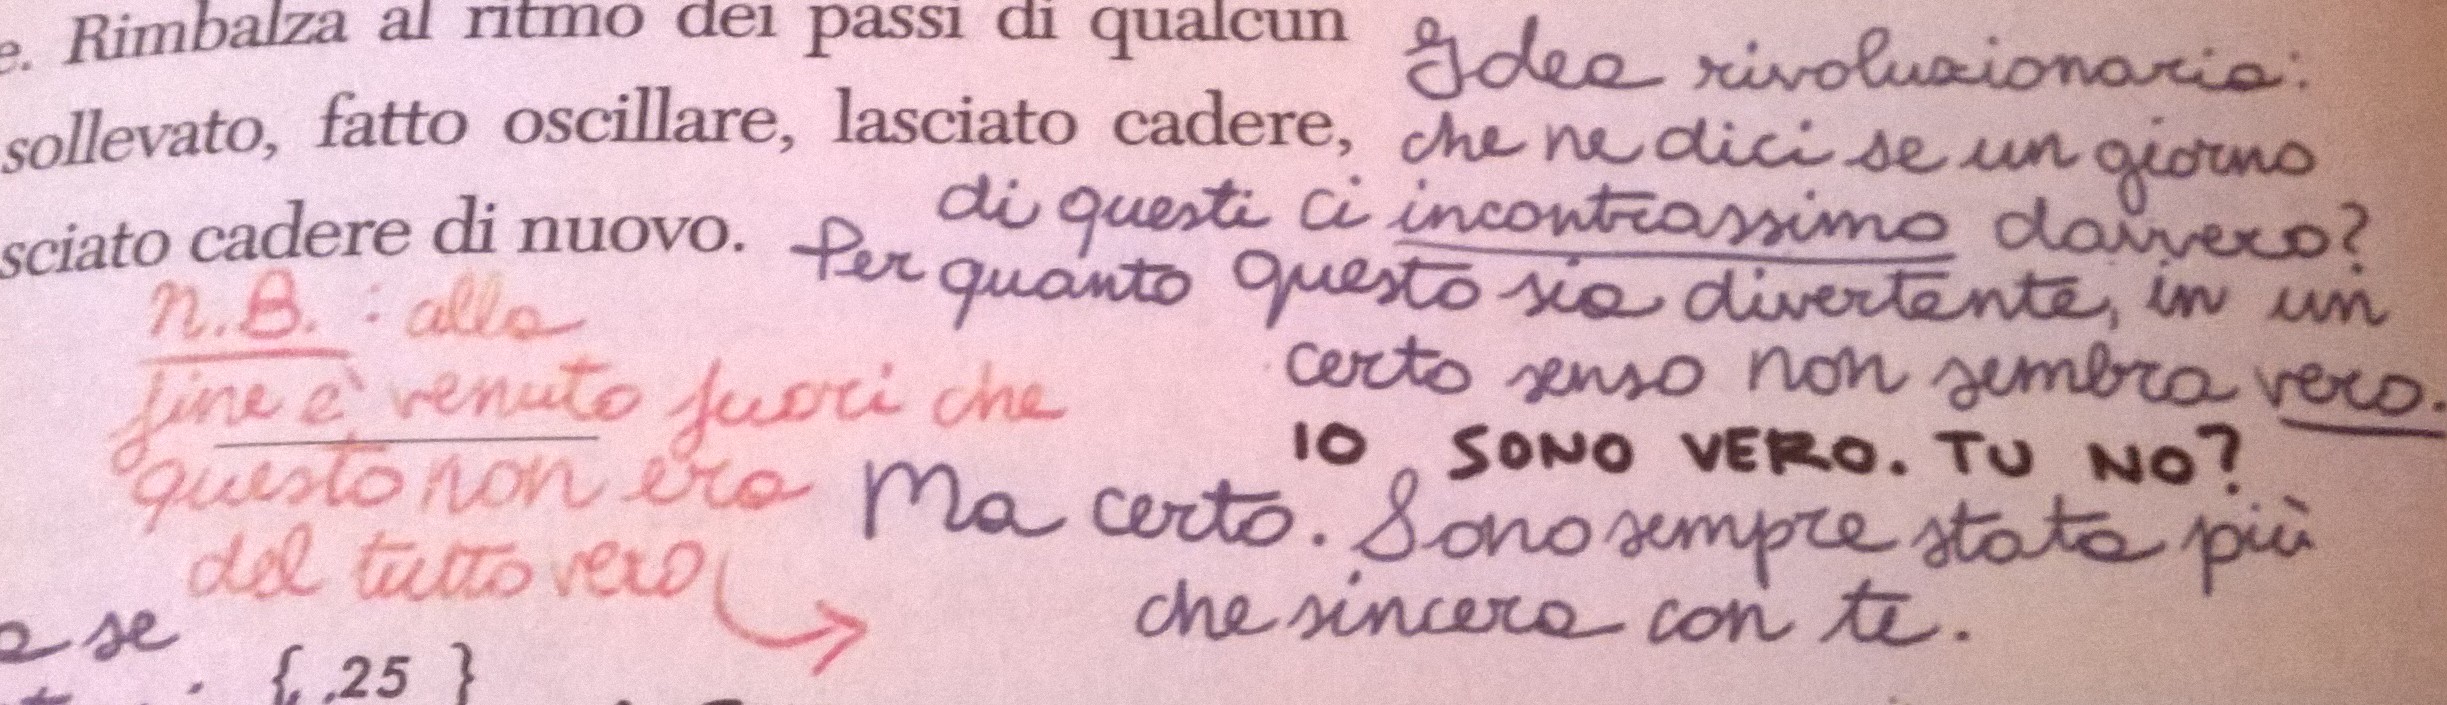 e. Rimbalza al ritmo dei passi di qualcun
sollevato, fatto oscillare, lasciato cadere,
sciato cadere di nuovo.
Idea rivoluzionaria:
che ne dici se un giorno
di questi ci incontrassimo davvero?
Per quanto questo sia divertente, in un
certo senso non sembra vero.
IO SONO VERO. TU NO?
Ma certo. Sono sempre stata più
che sincera con te.
N.B.: alla
fine è venuto fuori che
questo non era
del tutto vero
a se
{ 25 }